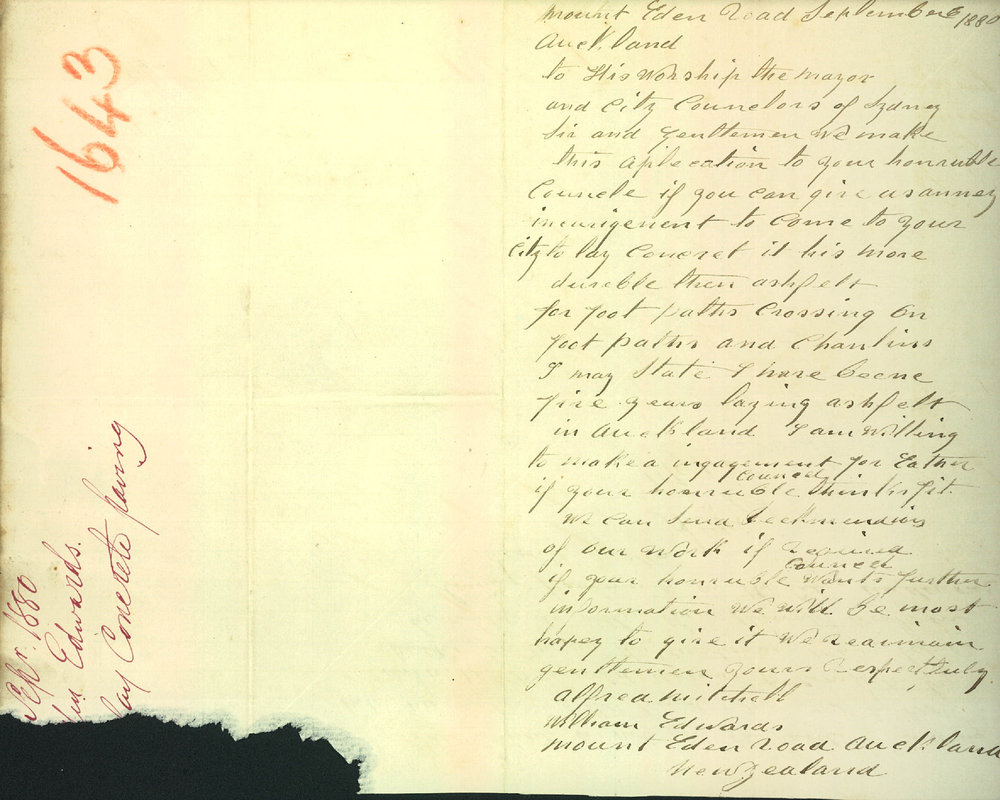 1643
Sepr. 1880
Wm Edwards.
lay Concrete paving
Mount Eden Road September 6 1880
Auckland
to His Worship the Mayor
and City Councelors of Sydney
Sir and Genttemen We make
this aplecation to your honruble
Councele if you can give us anney
incurigement to Come to your
City to lay Concret it his more
dureble then ashfelt
for foot paths Crossing On
foot paths and Chanlins
I may State I have beene
five years laying ashfelt
in Auckland I am Willing
to make a ingagement for Eather
if your honruble Councel thinks fit
We can Send
of our Work if
if your honruble Councel Wants further
information We Will be most
hapey to give it We reaimain
genttemen yours respectfuly
Alfred Mitchell
William Edwards
Mount Eden Road Auckland
New Zealand